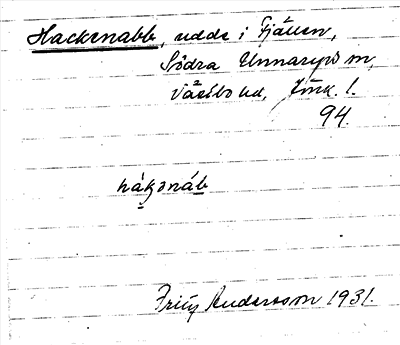 Hackenabb, udde i Fjällen,
Södra Unnaryd sn,
Västbo hd, Jönk. l.
94.
håkənáb
Fritz Andersson 1931.